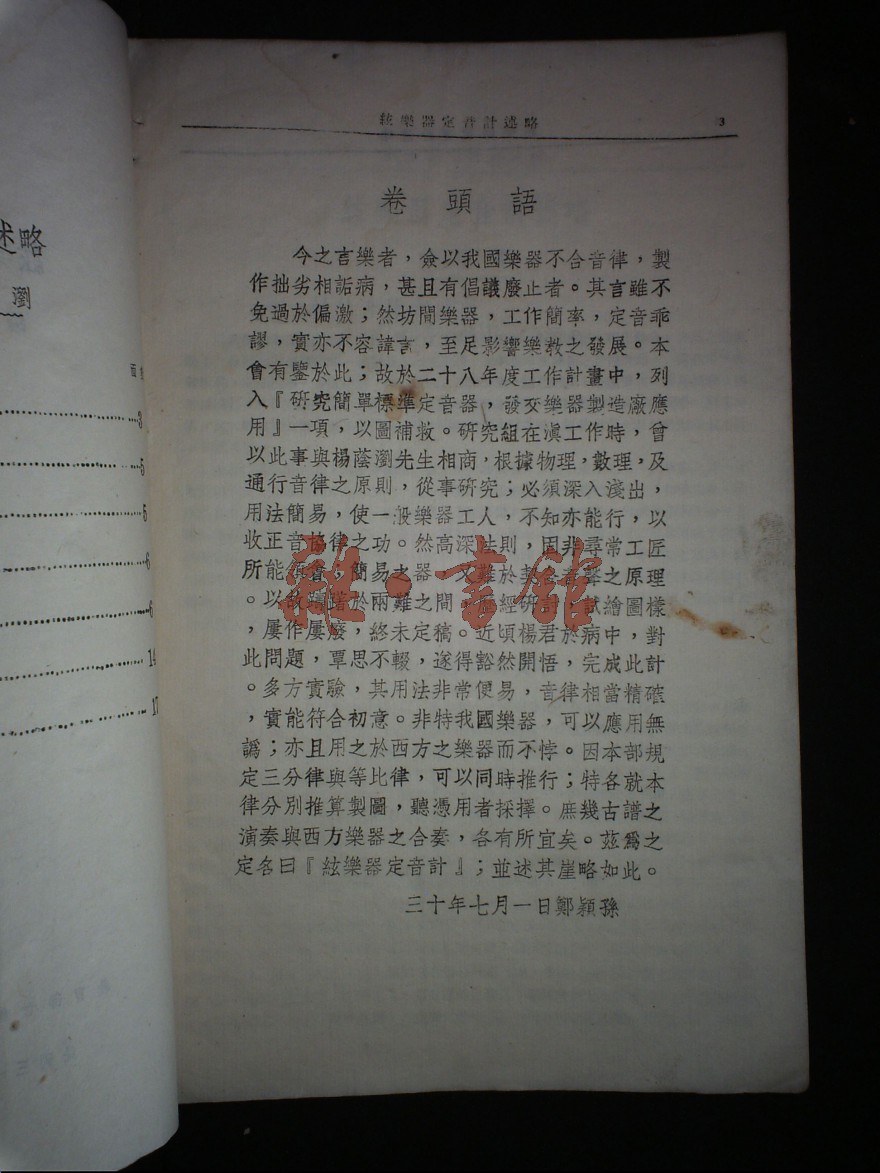 述略
瀏
面
3
5
5
6
6
14
17
絃樂器定音計述略 3
卷頭語
今之言樂者,僉以我國樂器不合音律,製
作拙劣相詬病,甚且有倡議廢止者。其言雖不
免過於偏激;然坊間樂器,工作簡率,定音乖
謬,實亦不容諱言,至足影響樂教之發展。本
會有鑒於此;故於二十八年度工作計畫中,列
入『研究簡單標準定音器,發交樂器製造廠應
用』一項,以圖補救。研究組在滇工作時,曾
以此事與楊蔭瀏先生相商,根據物理,數理,及
通行音律之原則,從事研究;必須深入淺出,
用法簡易,使一般樂器工人,不知亦能行,以
收正音協律之功。然高深法則,固非尋常工匠
所能領會;簡易之器,又難於契合音聲之原理
。以故躊躇於兩難之間,經研討,試繪圖樣
,屢作屢廢,終未定稿。近頃楊君於病中,對
此問題,覃思不輟,遂得豁然開悟,完成此計
。多方實驗,其用法非常便易,音律相當精確
,實能符合初意。非特我國樂器,可以應用無
譌;亦且用之於西方之樂器而不悖。因本部規
定三分律與等比律,可以同時推行;特各就本
律分別推算製圖,聽憑用者採擇。庶幾古譜之
演奏與西方樂器之合奏,各有所宜矣。茲爲之
定名曰『絃樂器定音計』;並述其崖略如此。
三十年七月一日鄭穎孫
雜·書館